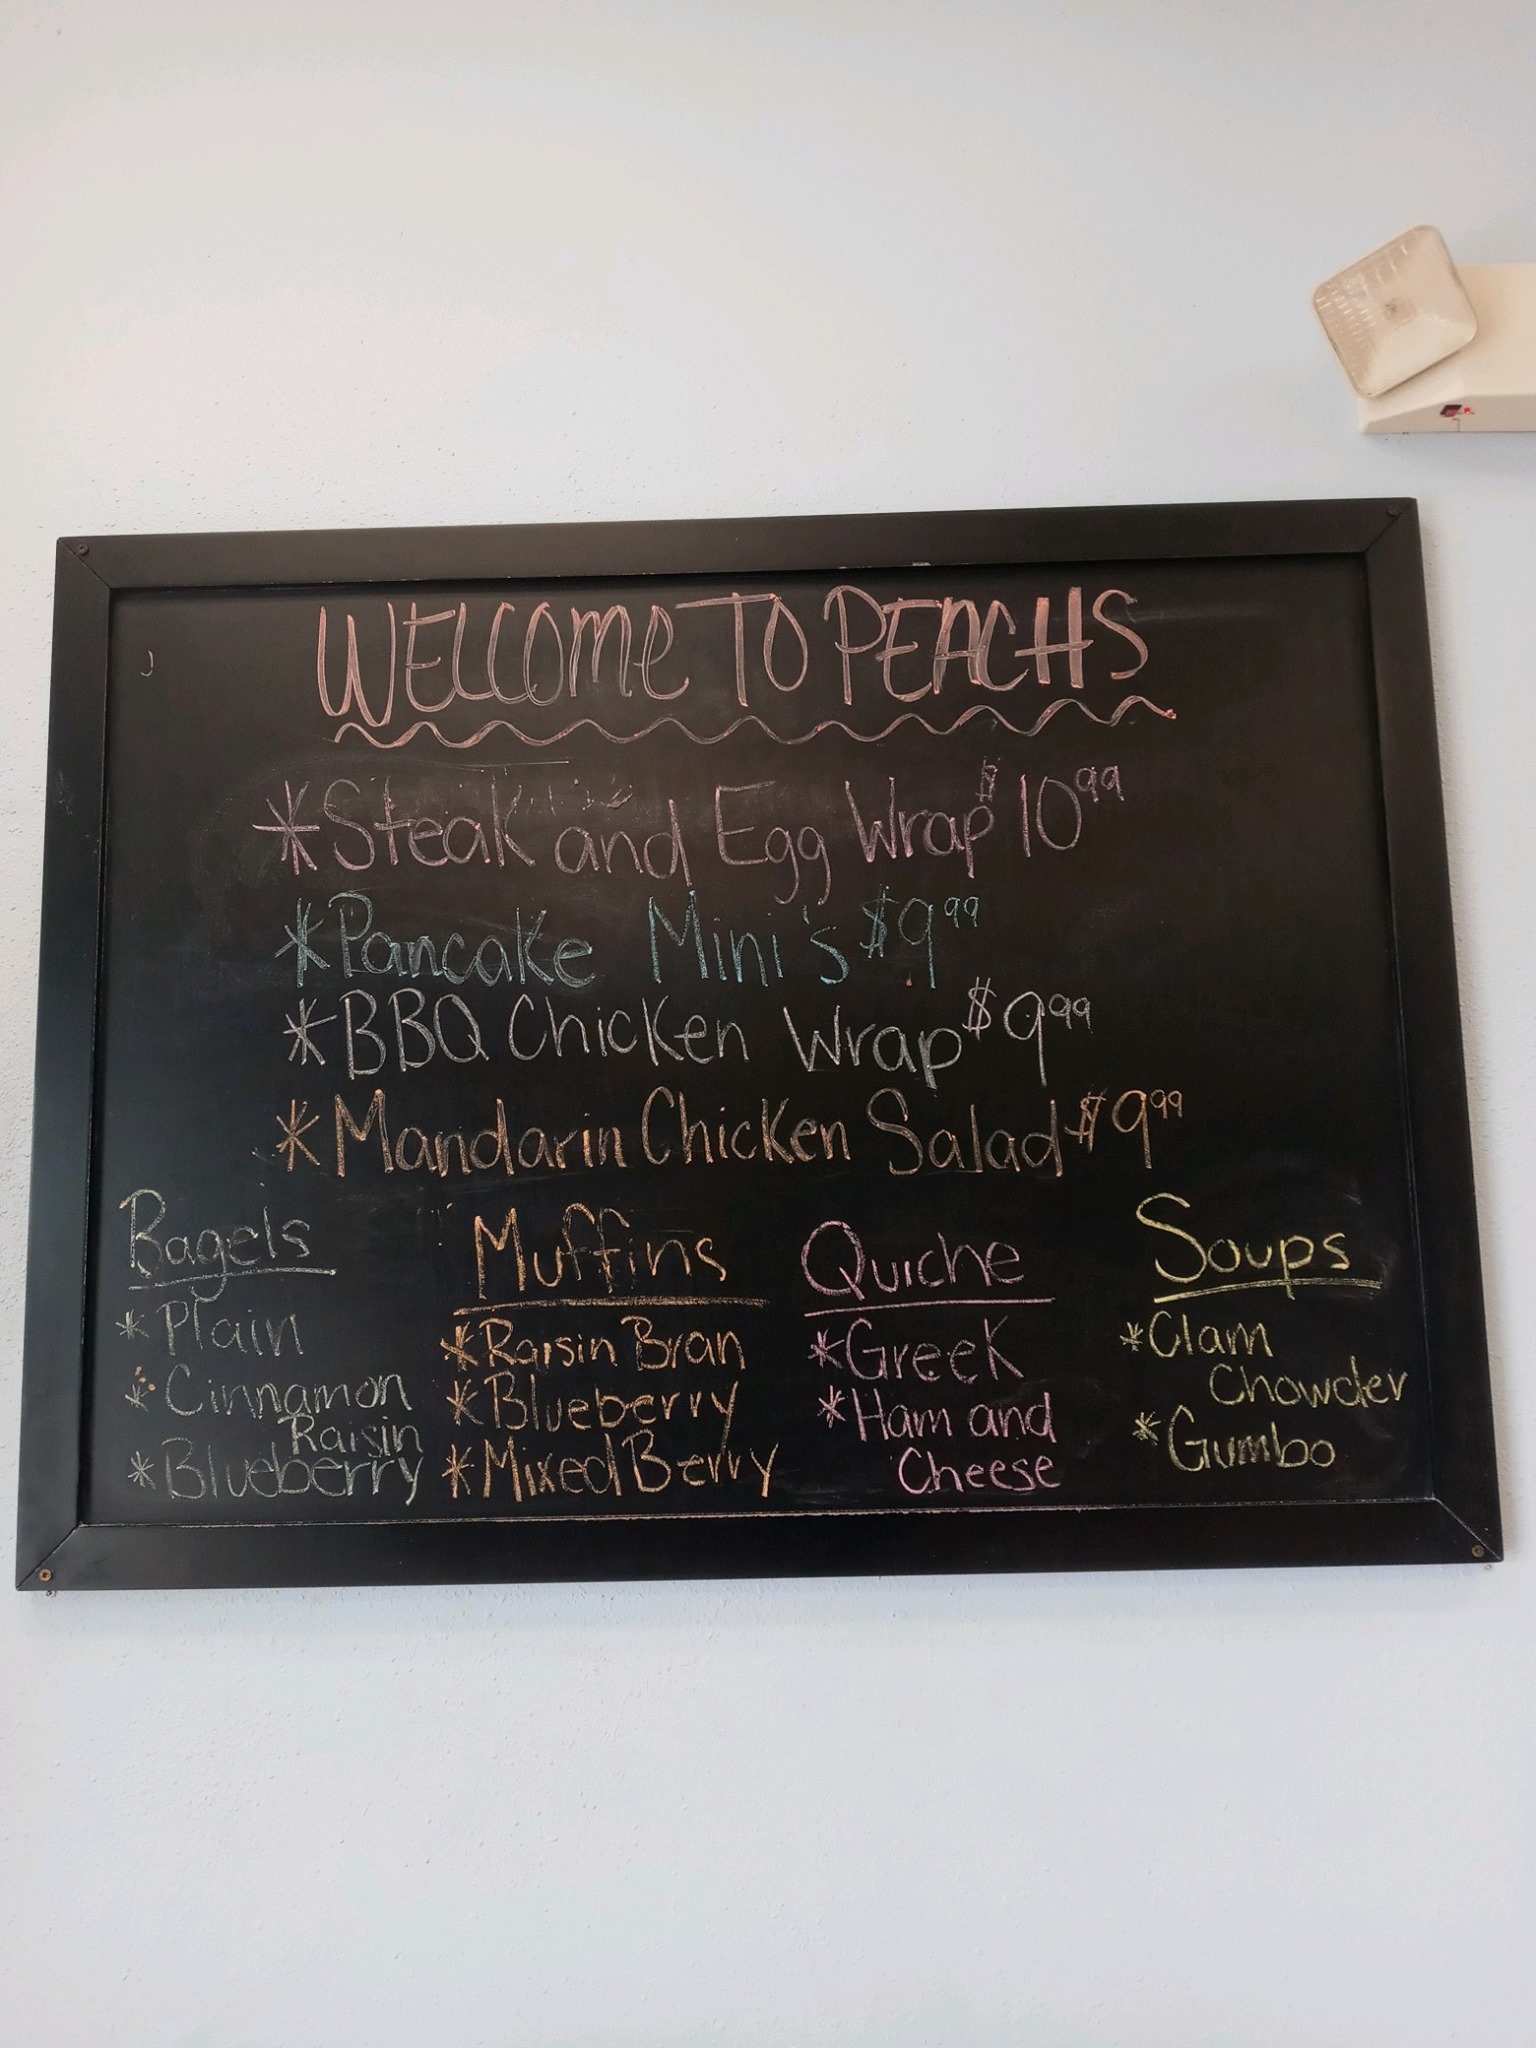 WELCOME TO PEACHS
*Steak and Egg Wrap $10⁹⁹
*Pancake Mini's $9⁹⁹
*BBQ Chicken Wrap $9⁹⁹
*Mandarin Chicken Salad $9⁹⁹
Bagels
*Plain
*Cinnamon
Raisin
*Blueberry
Muffins
*Raisin Bran
*Blueberry
*Mixed Berry
Quiche
*Greek
*Ham and
Cheese
Soups
*Clam
Chowder
*Gumbo